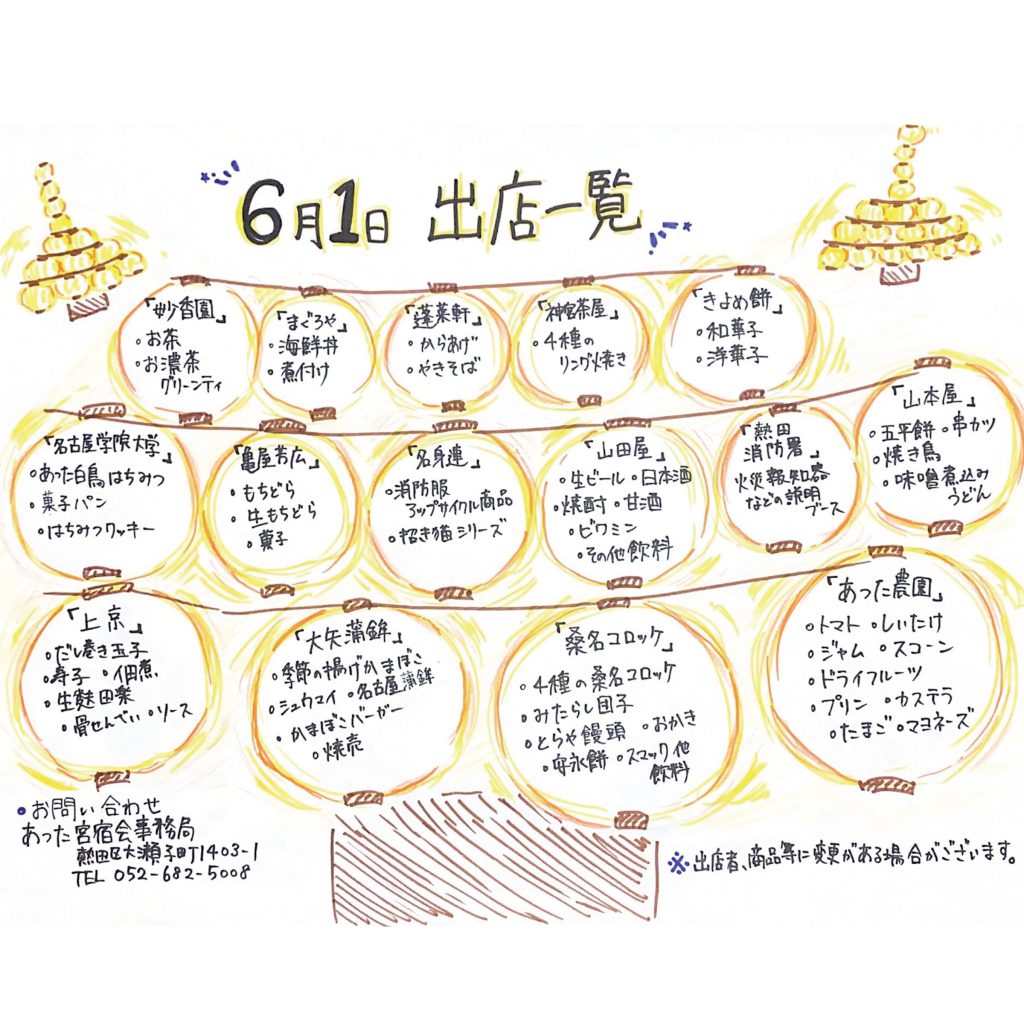 6月1日 出店一覧
「妙香園」
・お茶
・お濃茶
グリーンティ
「まぐろや」
・海鮮丼
・煮付け
「蓬莱軒」
・からあげ
・やきそば
「神宮茶屋」
・4種の
リング焼き
「きよめ餅」
・和菓子
・洋菓子
「名古屋学院大学」
・あつた白鳥はちみつ
・菓子パン
・はちみつクッキー
「亀屋芳広」
・もちどら
・生もちどら
・菓子
「名身連」
・消防服
アップサイクル商品
・招き猫シリーズ
「山田屋」
・生ビール ・日本酒
・焼酎 ・甘酒
・ビワミン
・その他飲料
「熱田
消防署」
火災報知器
などの説明
ブース
「山本屋」
・五平餅 ・串カツ
・焼き鳥
・味噌煮込み
うどん
「上京」
・だし巻き玉子
・寿子 ・佃煮
・生麩田楽
・骨せんべい ・ソース
「大矢蒲鉾」
・季節の揚げかまぼこ
・シュウマイ ・名古屋蒲鉾
・かまぼこバーガー
・焼売
「桑名コロッケ」
・4種の桑名コロッケ
・みたらし団子
・とらや饅頭 ・おかき
・安永餅 ・スマック他
飲料
「あつた農園」
・トマト ・しいたけ
・ジャム ・スコーン
・ドライフルーツ
・プリン ・カステラ
・たまご ・マヨネーズ
・お問い合わせ
あつた宮宿会事務局
熱田区大瀬子町1403-1
TEL 052-682-5008
※出店者、商品等に変更がある場合がございます。